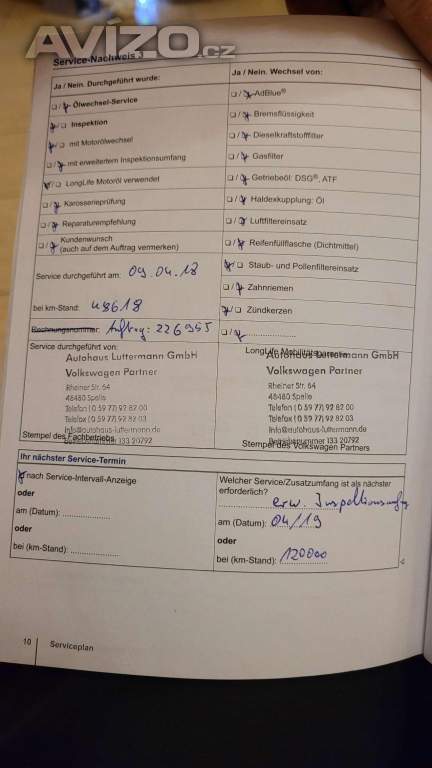 AVÍZO.cz
Service-Nachweis 3
Ja / Nein. Durchgeführt wurde:
Ölwechsel-Service
Inspektion
mit Motorölwechsel
mit erweitertem Inspektionsumfang
LongLife Motoröl verwendet
Karosserieprüfung
Reparaturempfehlung
Kundenwunsch
(auch auf dem Auftrag vermerken)
Service durchgeführt am: 09.04.18
bei km-Stand: 48618
Rechnungsnummer: Auftrag: 226955
Service durchgeführt von:
Autohaus Luttermann GmbH
Volkswagen Partner
Rheiner Str. 64
48480 Spelle
Telefon (0 59 77) 92 82 00
Telefax (0 59 77) 92 82 03
info@autohaus-luttermann.de
Betriebsnummer 133 20792
Stempel des Fachbetriebs
Ja / Nein. Wechsel von:
AdBlue®
Bremsflüssigkeit
Dieselkraftstofffilter
Gasfilter
Getriebeöl: DSG®, ATF
Haldexkupplung: Öl
Luftfiltereinsatz
Reifenfüllflasche (Dichtmittel)
Staub- und Pollenfiltereinsatz
Zahnriemen
Zündkerzen
LongLife Mobilitätsgarantie
Autohaus Luttermann GmbH
Volkswagen Partner
Rheiner Str. 64
48480 Spelle
Telefon (0 59 77) 92 82 00
Telefax (0 59 77) 92 82 03
info@autohaus-luttermann.de
Betriebsnummer 133 20792
Stempel des Volkswagen Partners
Ihr nächster Service-Termin
nach Service-Intervall-Anzeige
oder
am (Datum):
oder
bei (km-Stand):
Welcher Service/Zusatzumfang ist als nächster
erforderlich?
erw. Inspektionsumfg
am (Datum): 04/19
oder
bei (km-Stand): 120000
10 Serviceplan